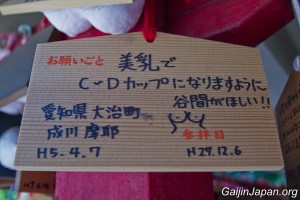 お願いごと 美乳で
C〜Dカップになりますように
谷間がほしい!!
愛知県 大治町
成川 摩耶
参拝日
H5.4.7 H27.12.6
GaijinJapan.org